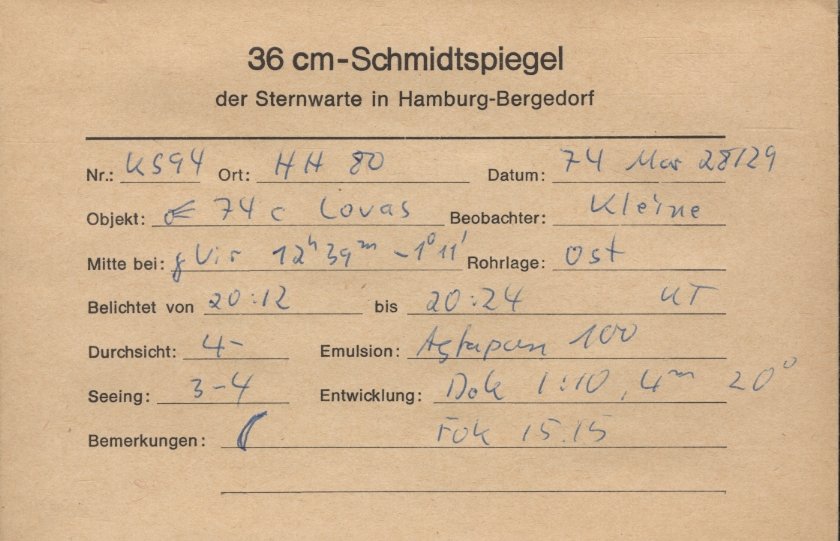 36 cm-Schmidtspiegel
der Sternwarte in Hamburg-Bergedorf
Nr.: KS94 Ort: HH 80 Datum: 74 Mar 28/29
Objekt: 74 c Lovas Beobachter: Kleine
Mitte bei: γ Vir 12ʰ 39ᵐ -1° 11' Rohrlage: Ost
Belichtet von 20:12 bis 20:24 UT
Durchsicht: 4- Emulsion: Agfapan 100
Seeing: 3-4 Entwicklung: Dok 1:10, 4ᵐ 20°
Bemerkungen: Fok 15.15